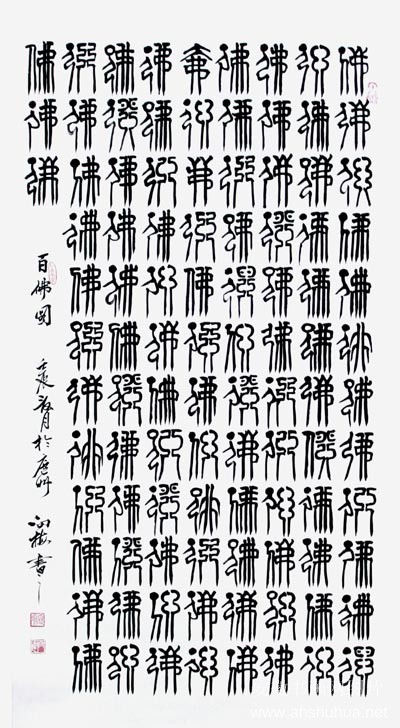 佛佛佛佛佛佛佛佛佛佛佛佛
佛佛佛佛佛佛佛佛佛佛佛佛
佛佛佛佛佛佛佛佛佛佛佛佛
佛佛佛佛佛佛佛佛佛佛佛佛
佛佛佛佛佛佛佛佛佛佛佛佛
佛佛佛佛佛佛佛佛佛佛佛佛
佛佛佛佛佛佛佛佛佛佛佛佛
佛佛佛佛佛佛佛佛佛佛佛佛
佛佛佛
百佛图 壬辰月於庐州 書
www.ahshuhua.net